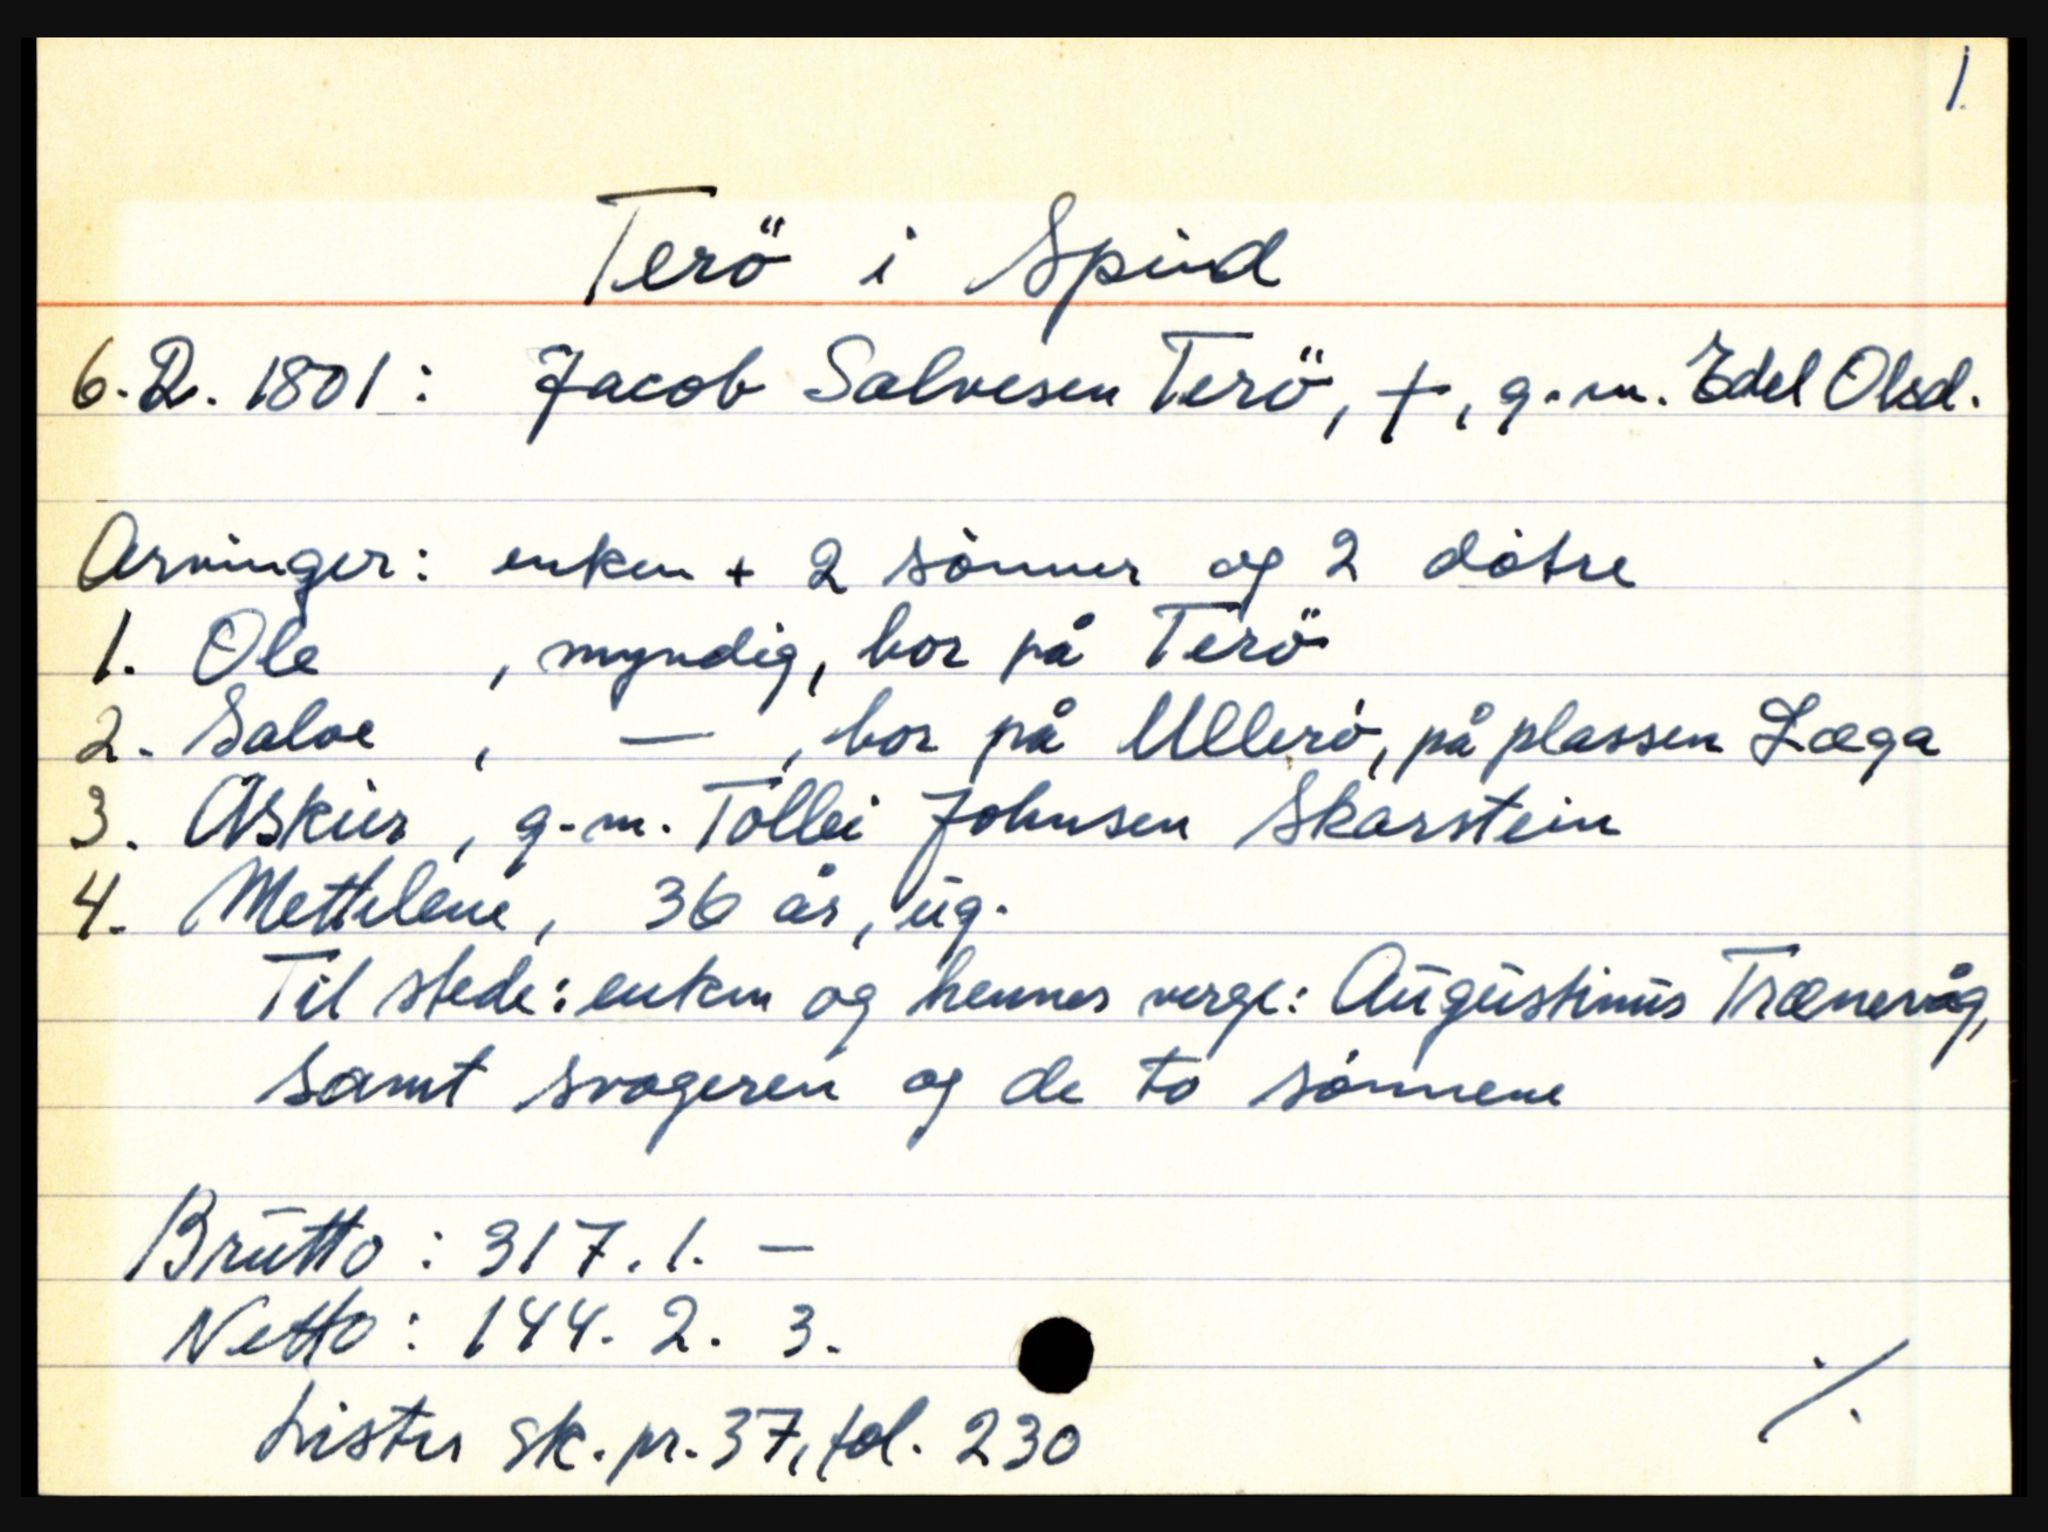 1.
Terö i Spind
6. 2. 1801: Jacob Salvesen Terö, †, g.m. Edel Olsd.
Arvinger: enken + 2 sönner og 2 døtre
1. Ole , myndig, bor på Terö
2. Salve , — , bor på Ullerö, på plassen Læga
3. Åskier, g.m. Tollei Johnsen Skarstein
4. Mettelene, 36 år, ug.
Til stede: enken og hennes verge: Augustinus Trænevåg,
samt svogeren og de to sönnene
Brutto: 317. 1. —
Netto: 144. 2. 3.
Lister sk. pr. 37, fol. 230
./.